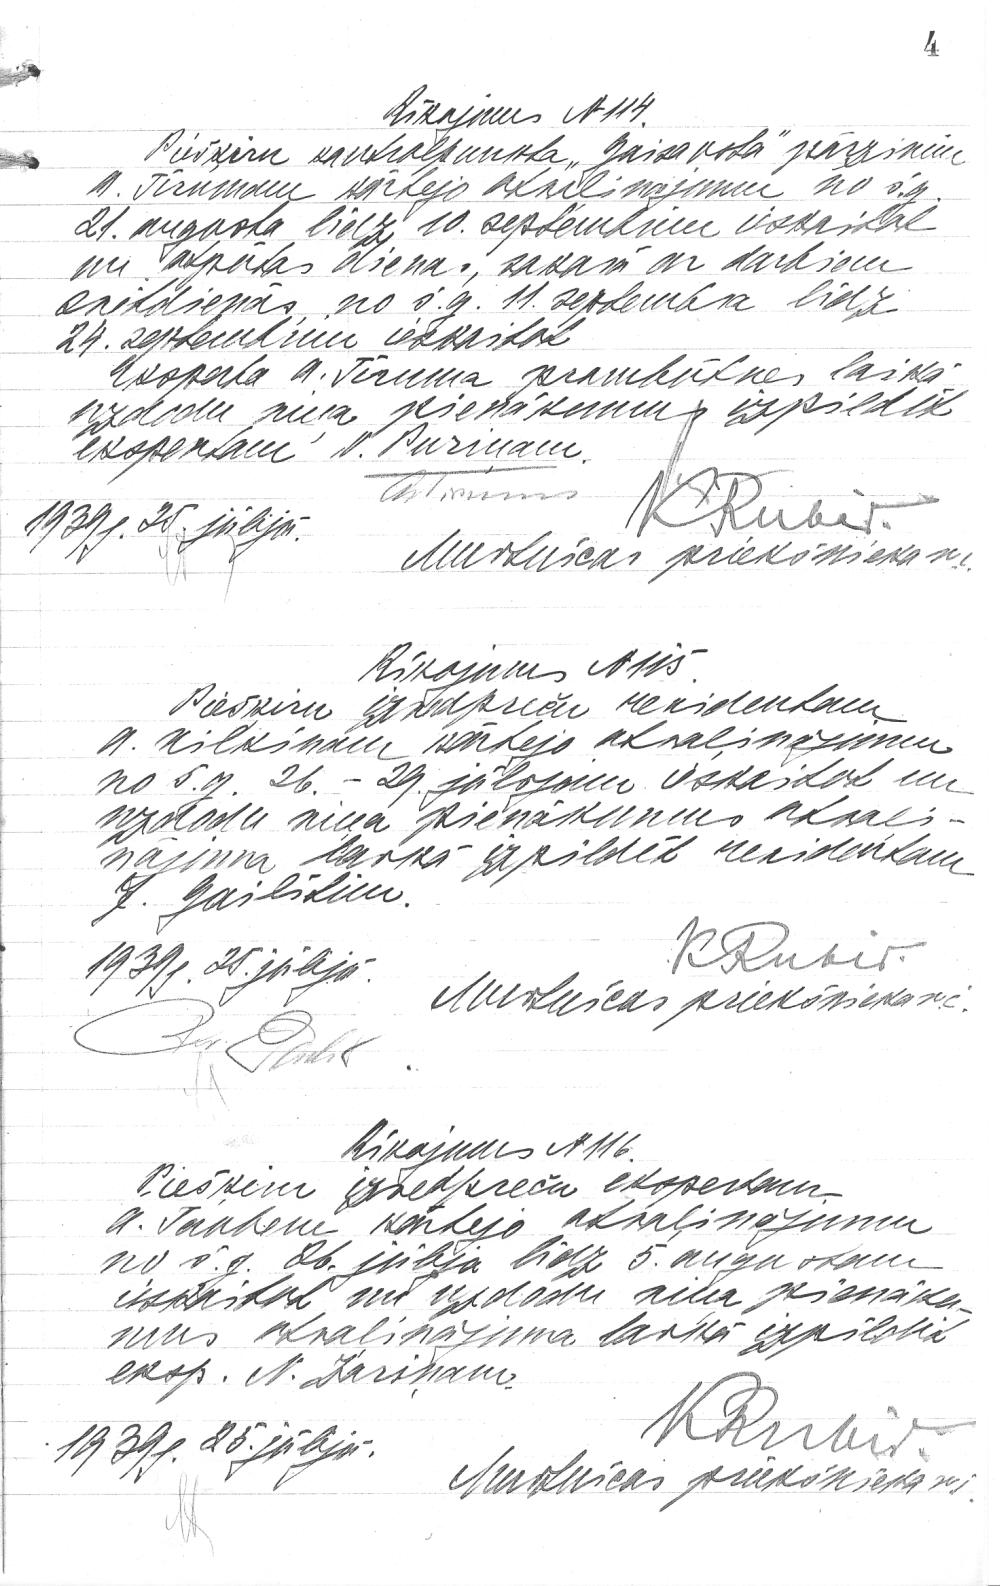 4
Rīkojums N 114.
Piešķiru kontrolpunkta „Gaisa osta" pārzinim
A. Tīrumam kārtējo atvaļinājumu no š.g.
21. augusta līdz 10. septembrim ieskaitot
un atpūtas dienas, sakarā ar darbiem
svētdienās, no š.g. 11. septembra līdz
24. septembrim ieskaitot
Eksperta A. Tīruma prombūtnes laikā
uzdodu viņa pienākumus izpildīt
ekspertam V. Puriņam.
K Rubis.
1939g. 25. jūlijā.
Muitnīcas priekšnieka v. i.
Rīkojums N 115.
Piešķiru izvedpreču rezidentam
A. Vilciņam kārtējo atvaļinājumu
no š.g. 26. – 29. jūlijam ieskaitot un
uzdodu viņa pienākumus atvaļi-
nājuma laikā izpildīt rezidentam
J. Gailītim.
K Rubis.
1939g. 25. jūlijā.
Muitnīcas priekšnieka v. i.
Rīkojums N 116.
Piešķiru izvedpreču ekspertam
A. Taubem kārtējo atvaļinājumu
no š.g. 26. jūlija līdz 5. augustam
ieskaitot un uzdodu viņa pienāku-
mus atvaļinājuma laikā izpildīt
eksp. N. Zariņam.
K Rubis.
1939g. 25. jūlijā.
Muitnīcas priekšnieka v. i.